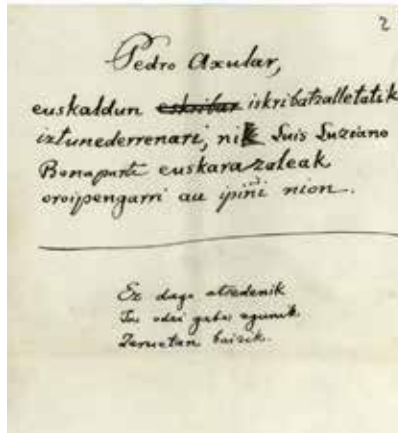 2
Pedro Axular,
euskaldun eskribar iskribatzalletatik
iztunederrenari, nik Luis Luziano
Bonaparte euskarazaleak
oroipengarri au ipiñi nion.
Ez dago atsedenik
edai gabe egunik
Zeruetan baizik.